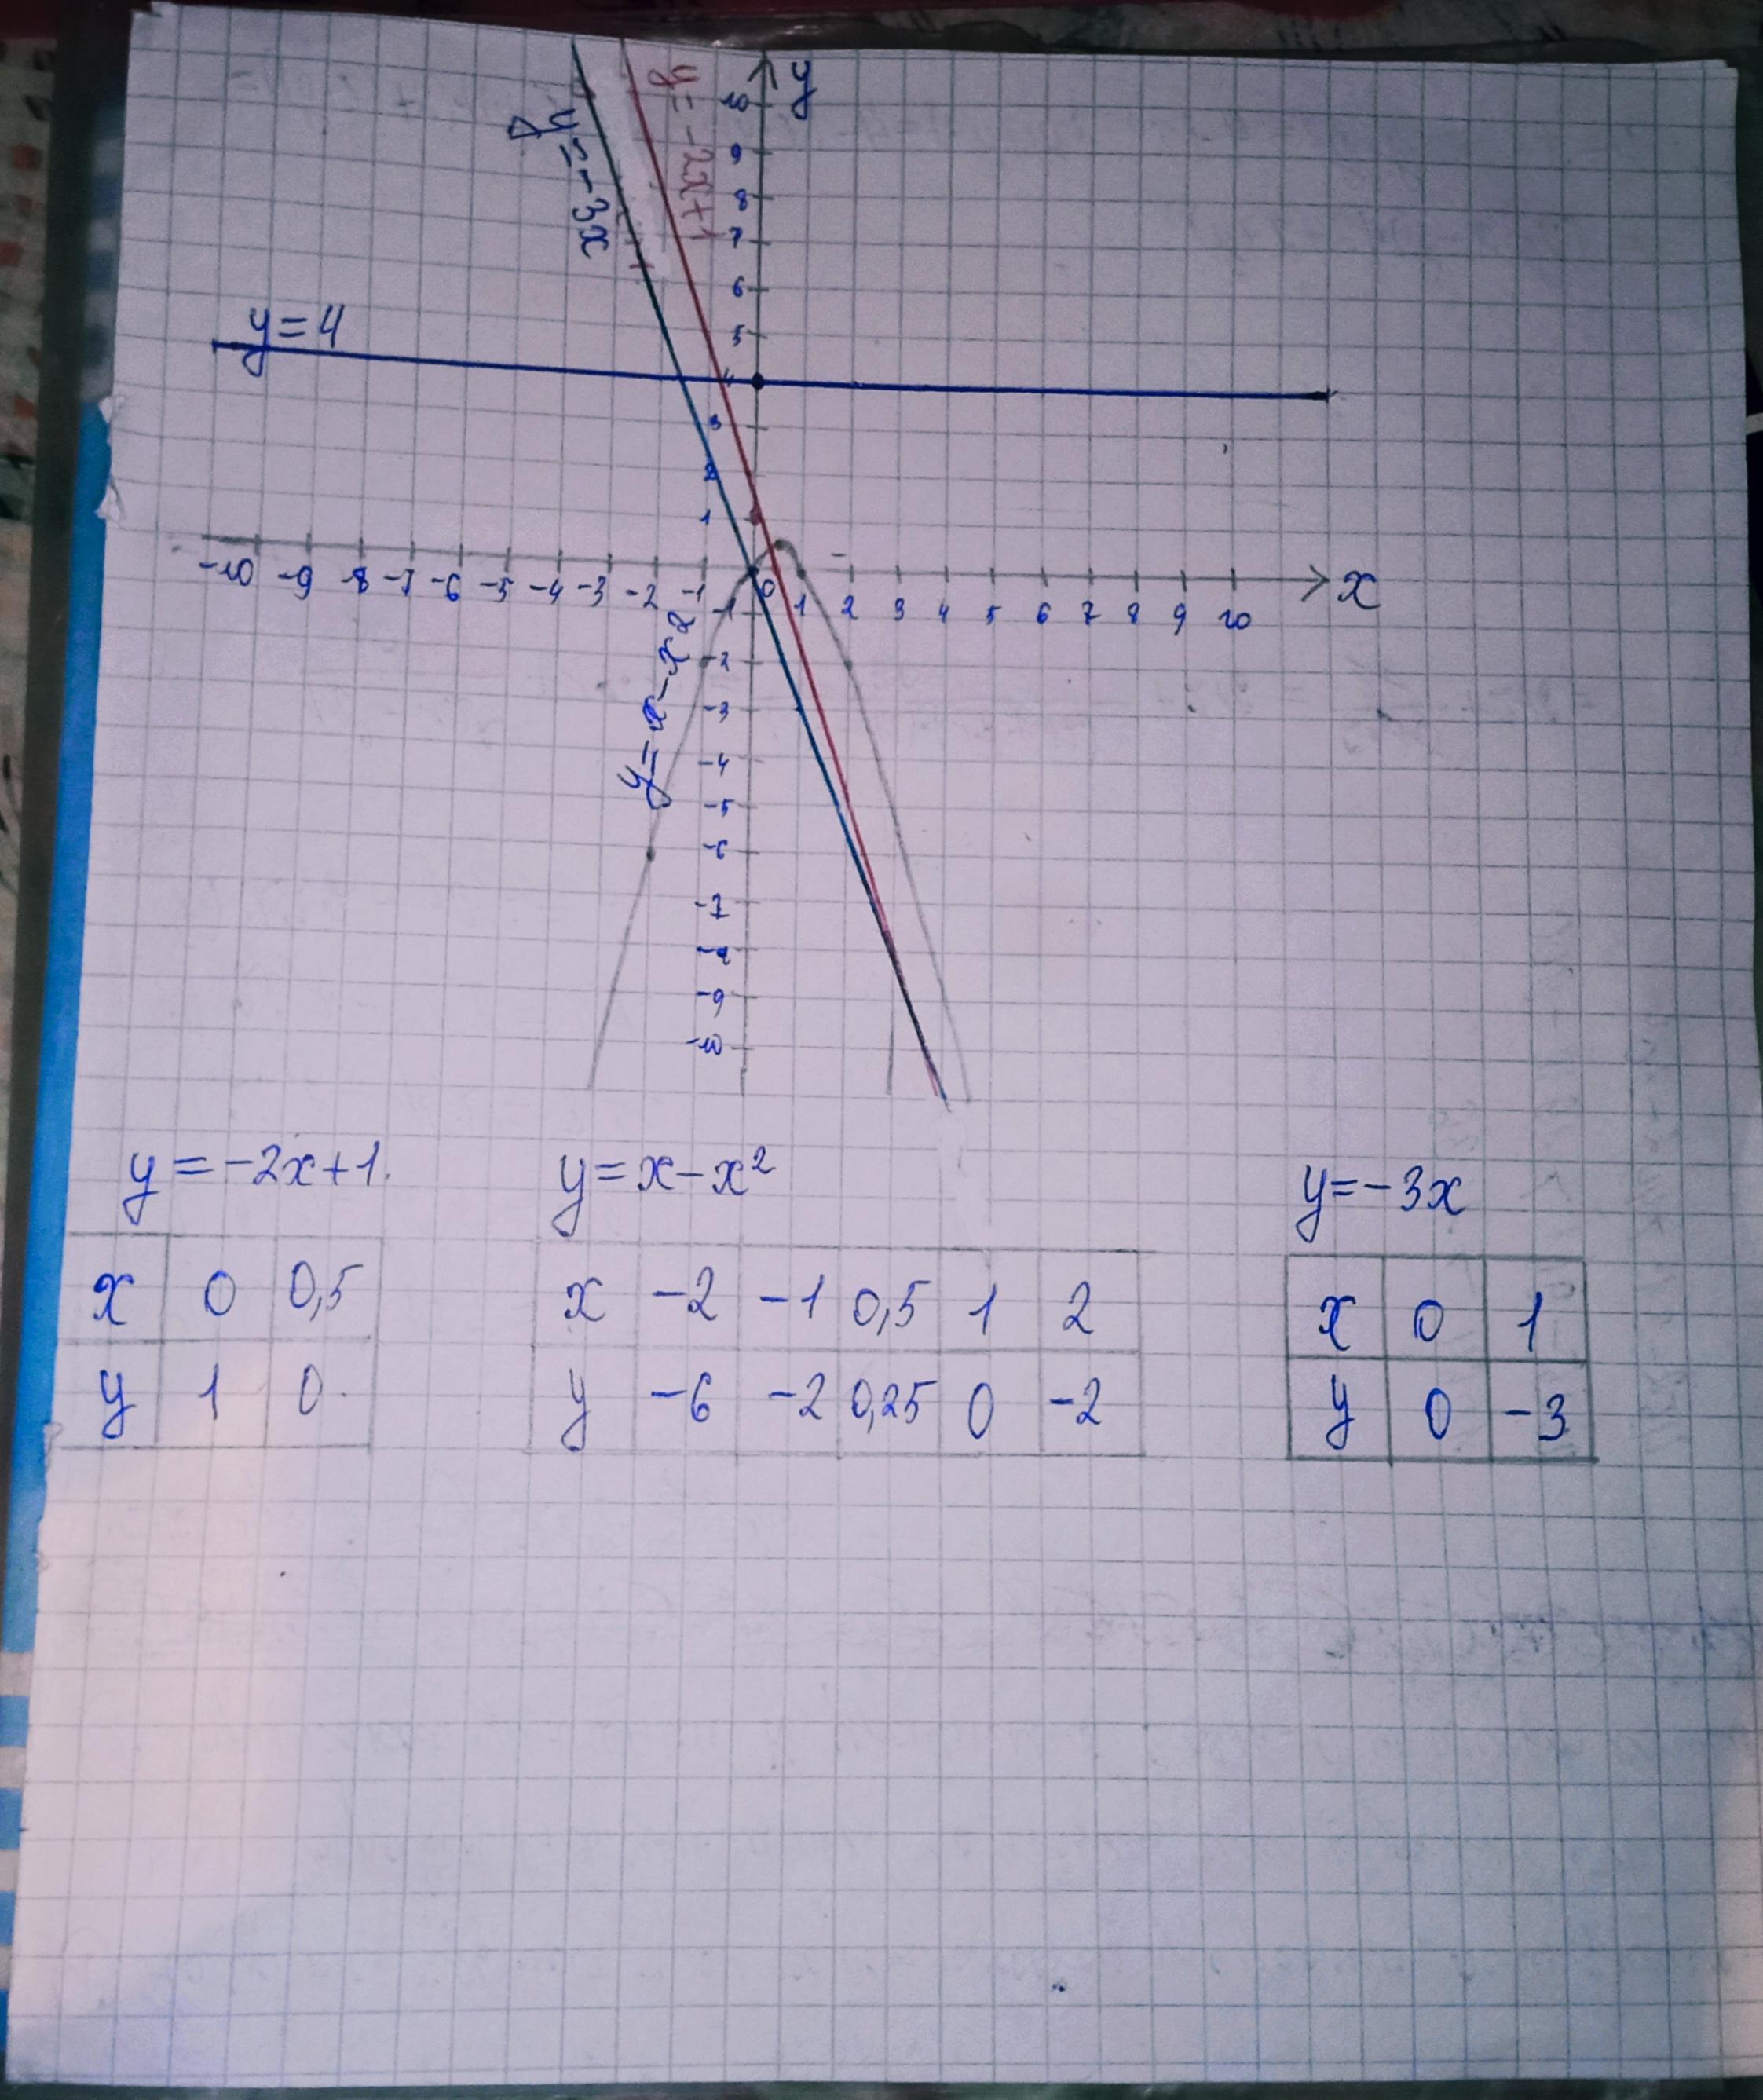 y
10
y=-2x+1
y=-3x
9
8
7
6
y=4
5
4
3
2
1
-10 -9 -8 -7 -6 -5 -4 -3 -2 -1 0 1 2 3 4 5 6 7 8 9 10 x
-1
y=x-x²
-2
-3
-4
-5
-6
-7
-8
-9
-10
y=-2x+1. y=x-x² y=-3x
x 0 0,5 x -2 -1 0,5 1 2 x 0 1
y 1 0 y -6 -2 0,25 0 -2 y 0 -3